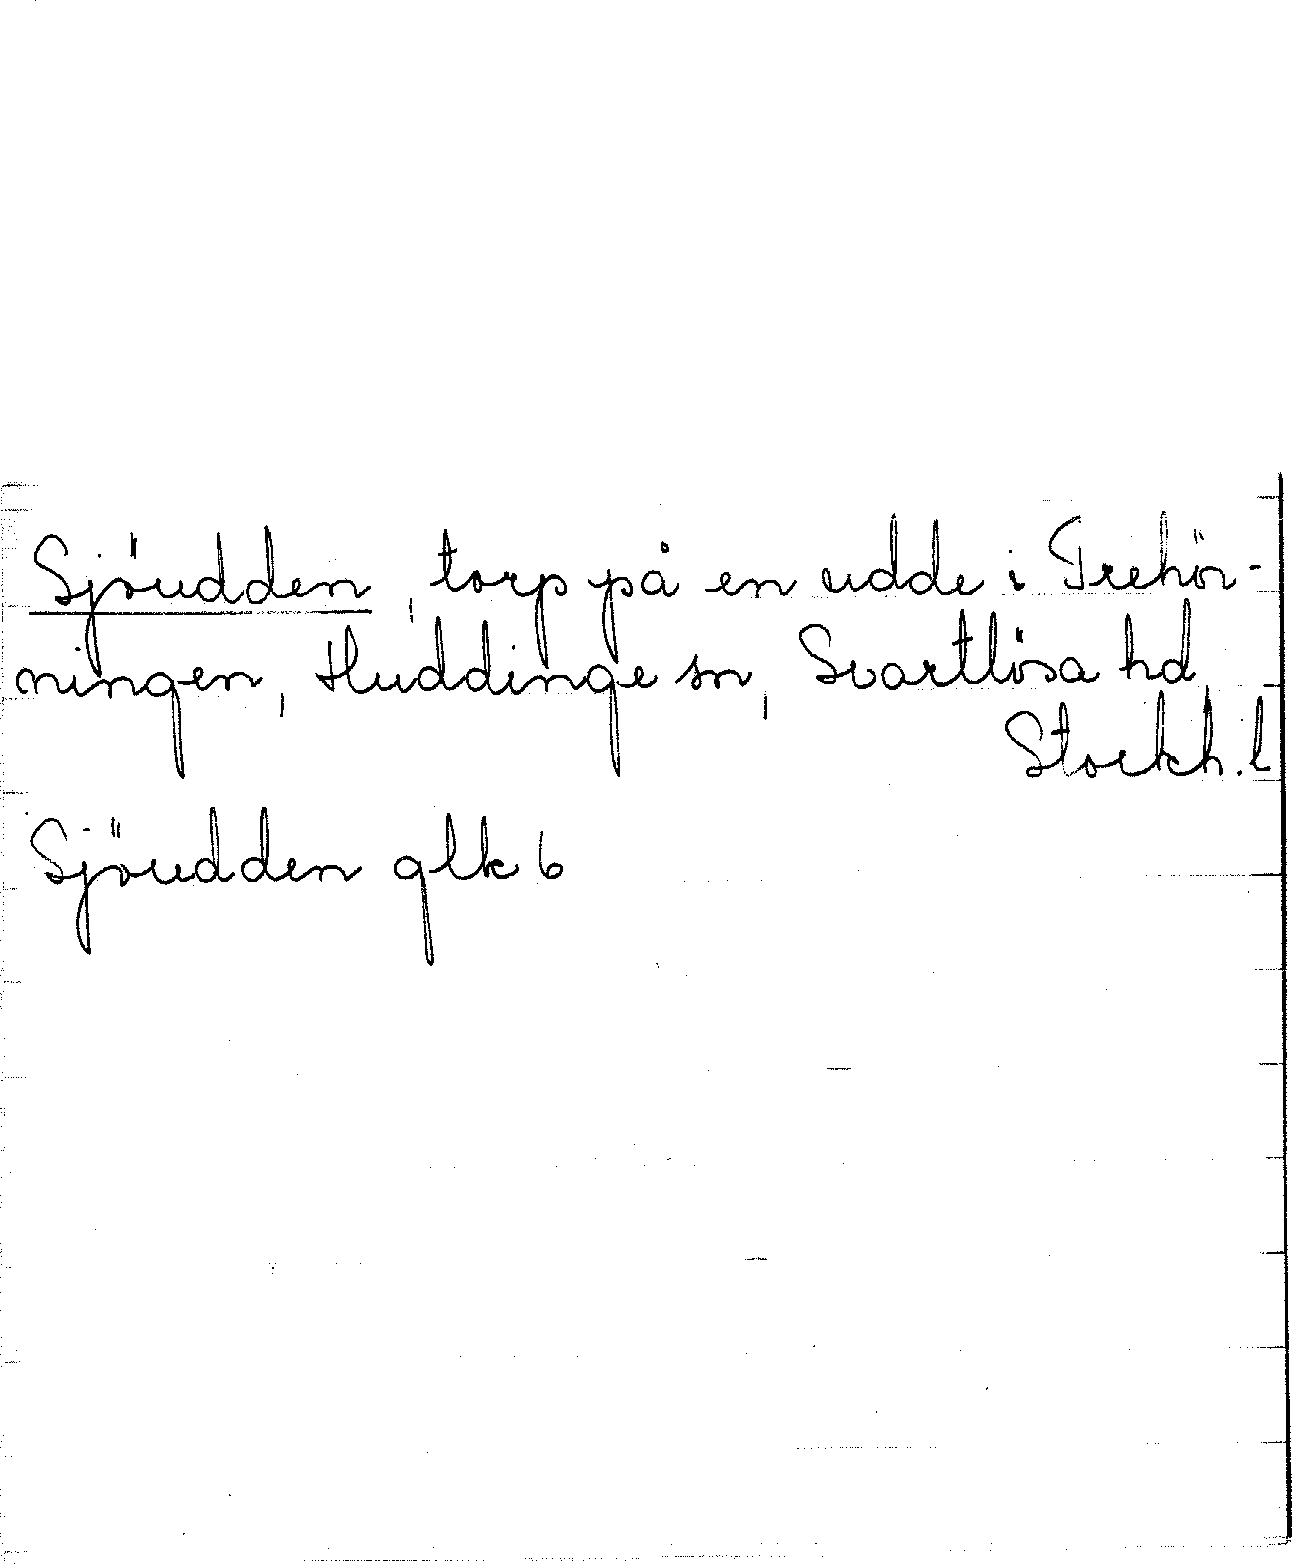 Sjöudden, torp på en udde i Trehör-
ningen, Huddinge sn, Svartlösa hd
Stockh. l
Sjöudden glk 6